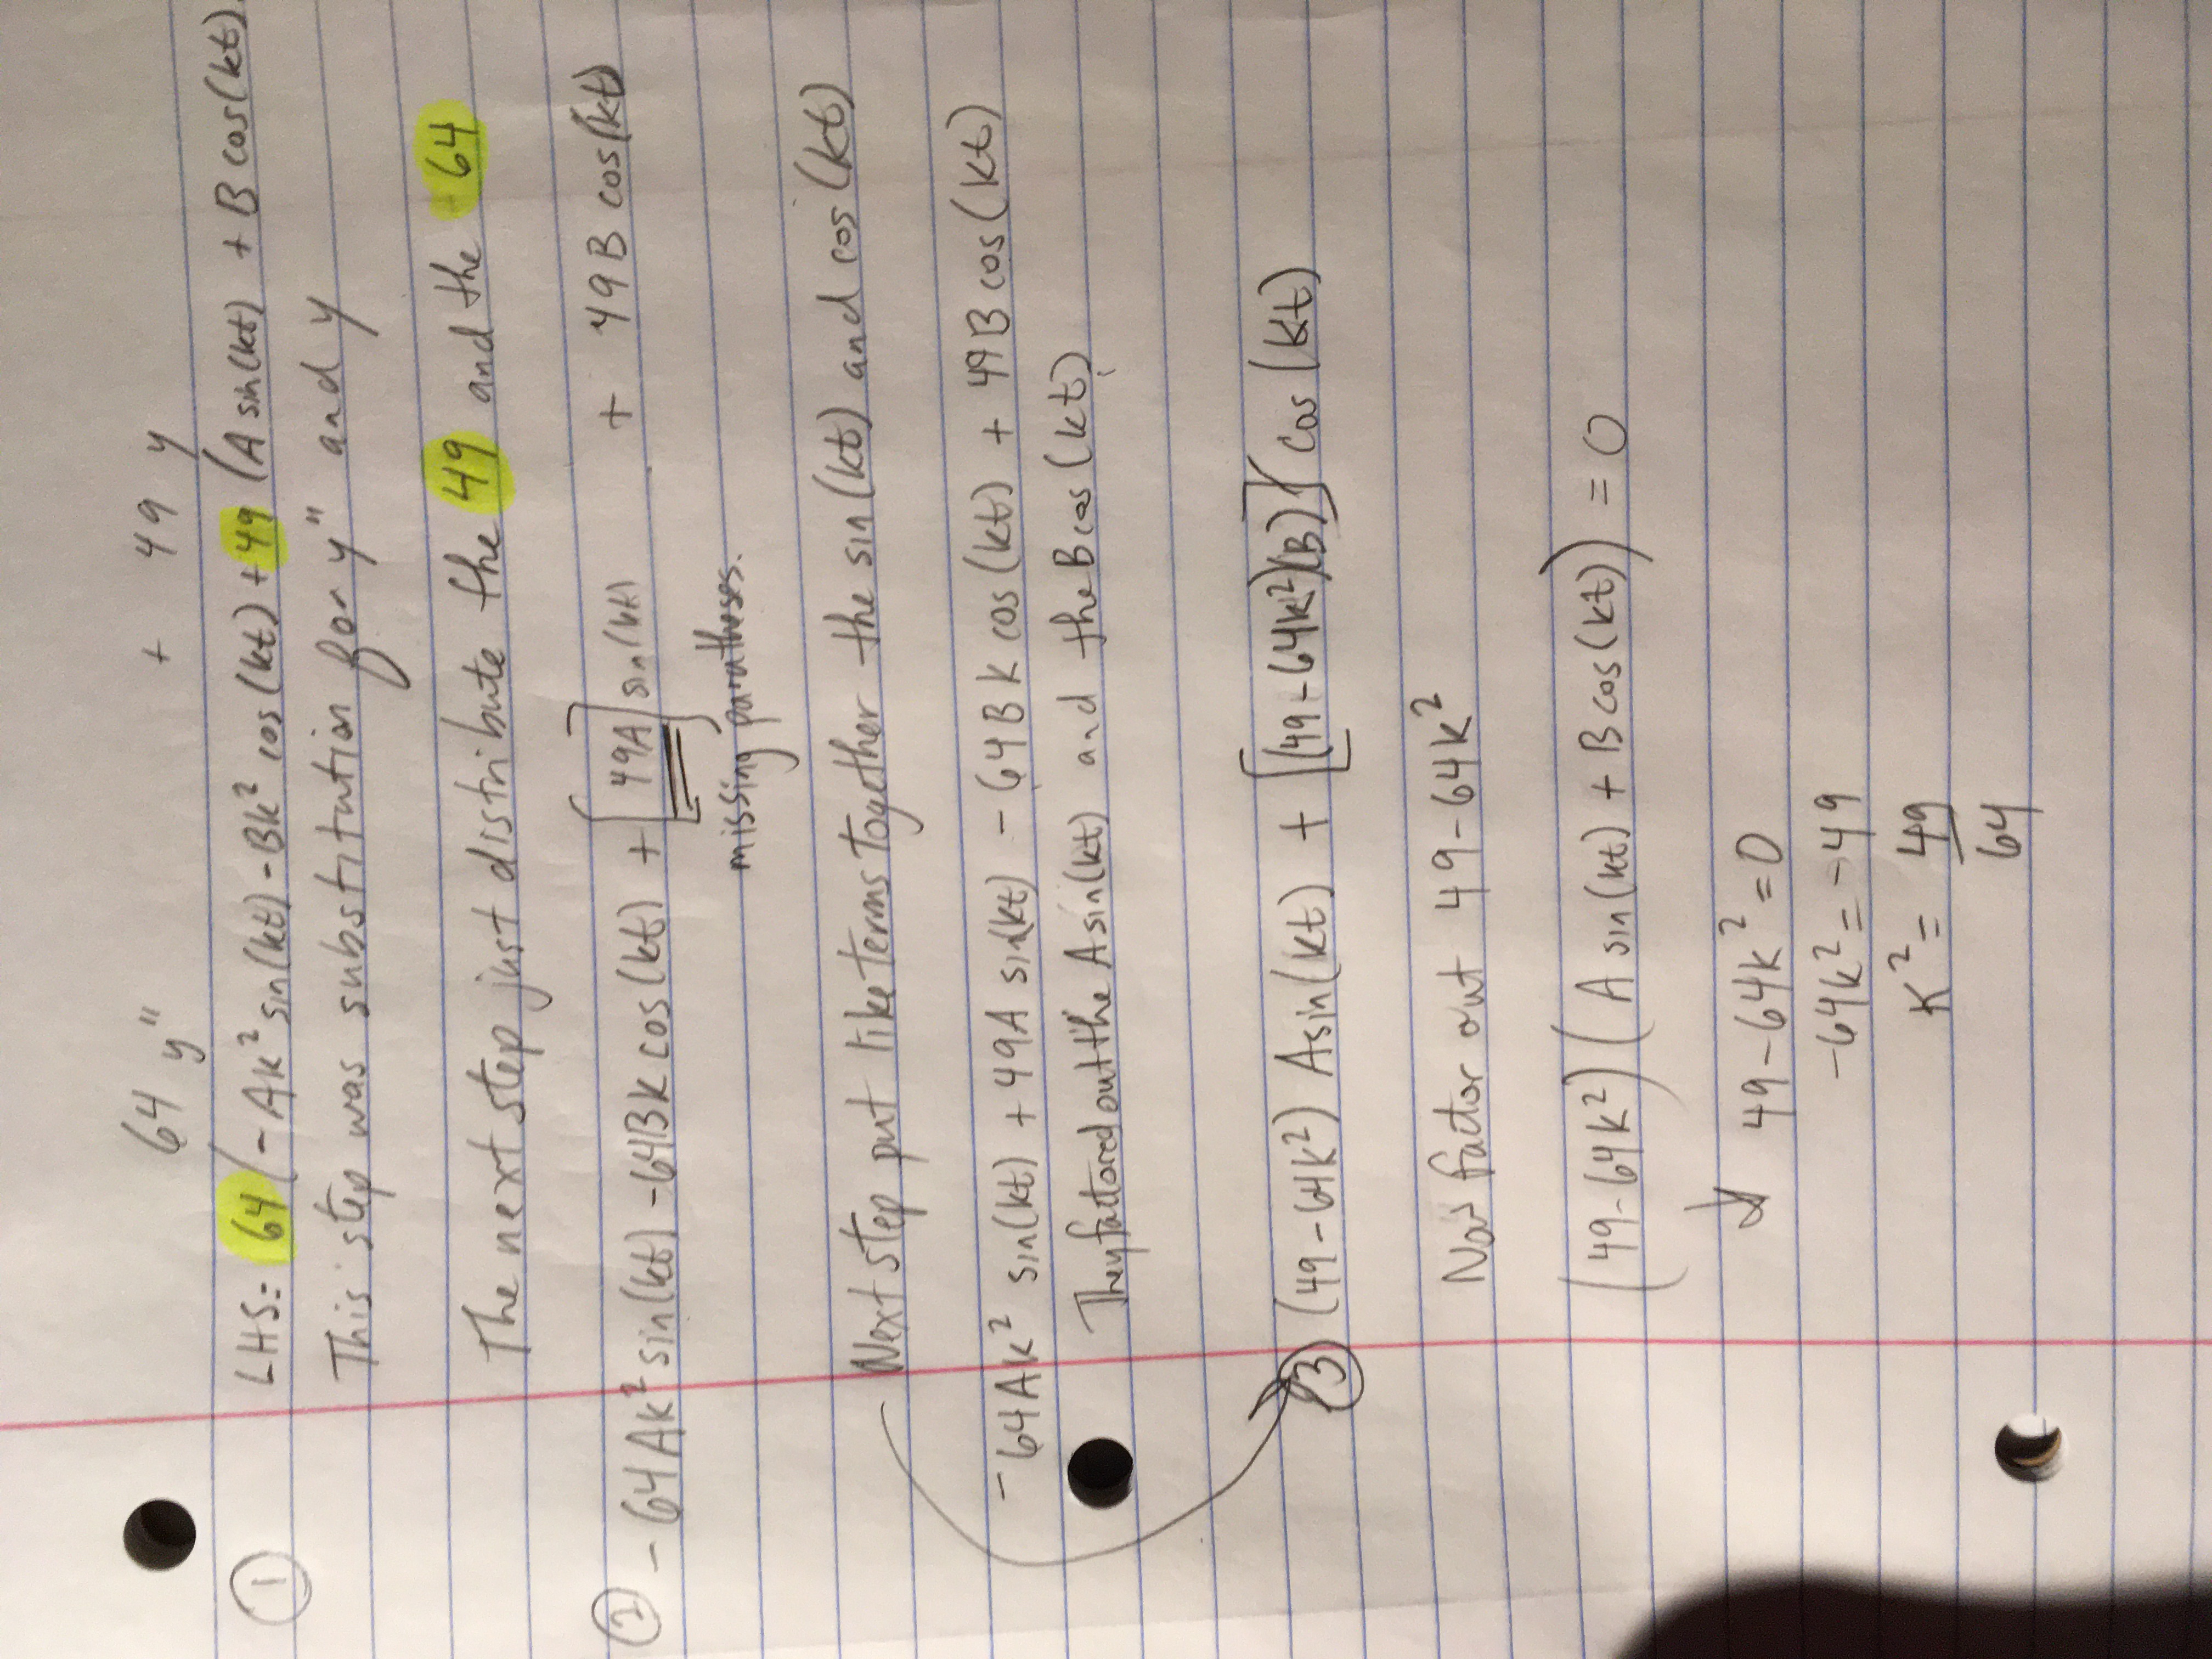 64 y" + 49 y
① LHS= 64(-Ak² sin(kt)-Bk² cos(kt)+49 (A sin(kt) + B cos(kt)
This step was substitution for y" and y
The next step just distribute the 49 and the 64
② -64Ak² sin(kt)-64Bk cos(kt) + [49A] sin(kt) + 49B cos(kt)
missing paratheses.
Next step put like terms together the sin(kt) and cos(kt)
-64Ak² sin(kt) + 49A sin(kt) - 64Bk cos(kt) + 49B cos(kt)
They factored out the A sin(kt) and the B cos(kt)
③ (49-64k²) Asin(kt) + [(49-64k²)(B)] cos(kt)
Now factor out 49-64k²
(49-64k²)(A sin(kt) + B cos(kt)) = 0
↓ 49-64k²=0
-64k²=-49
K²= 49
64